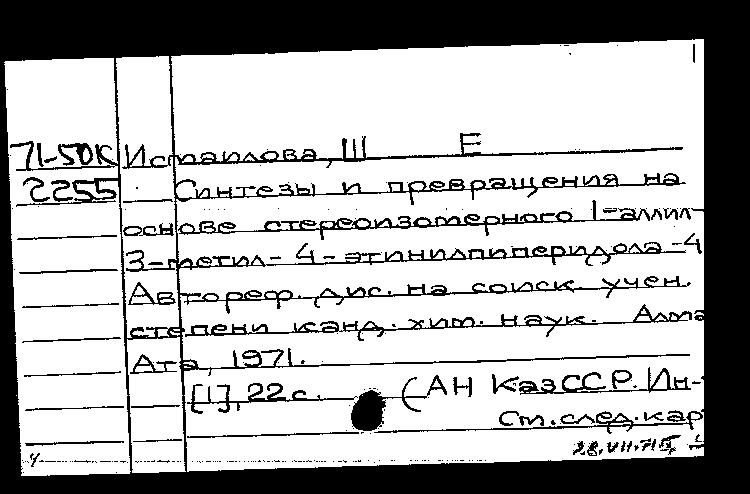 71-50К Исмаилова, Ш Е
2255 Синтезы и превращения на
основе стереоизомерного 1-аллил-
3-метил-4-этинилпиперидола-4
Автореф. дис. на соиск. учен.
степени канд. хим. наук. Алма
Ата, 1971.
[1], 22 с. (АН КазССР. Ин-
См. след. кар
28.VII.71